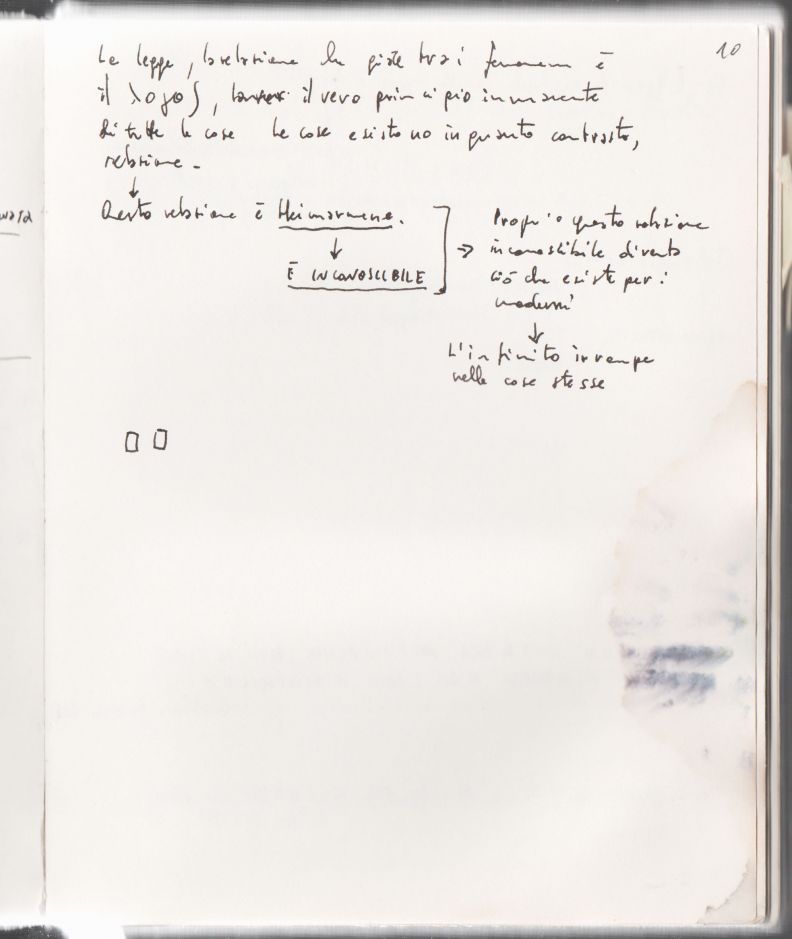 10
La legge, la relazione che esiste tra i fenomeni è
il λογος, il vero principio immanente
di tutte le cose Le cose esistono in quanto contrasto,
relazione -
↓
Questa relazione è Heimarmene.
↓
È INCONOSCIBILE
→ Proprio questa relazione
inconoscibile diventa
ciò che esiste per i
moderni
↓
L'infinito irrompe
nelle cose stesse